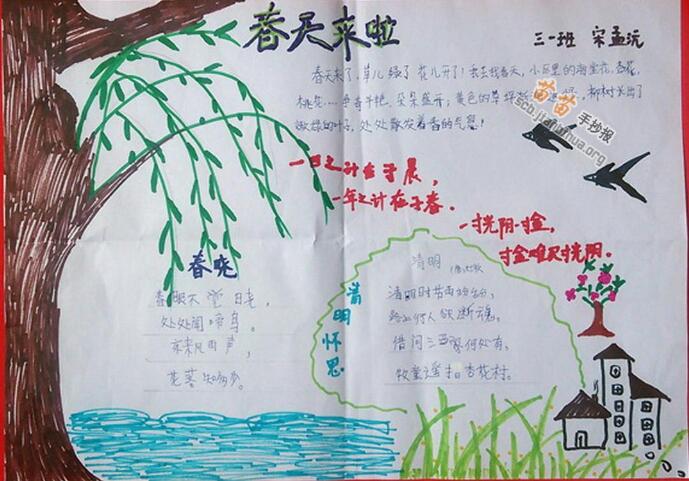 春天来啦
三一班 宋孟沅
春天来了,草儿绿了花儿开了!我去找春天,小区里的海棠花,杏花,
桃花....争奇斗艳,朵朵盛开,黄色的草坪
柳树长出了
嫩绿的叶子,处处散发着春的气息!
苗苗手抄报
scb.jiafuhua.org
一日之计在于晨,
一年之计在于春.
一寸光阴一寸金,
寸金难买寸光阴.
春晓
春眠不觉晓,
处处闻啼鸟。
夜来风雨声,
花落知多少
清明怀思
清明
清明时节雨纷纷,
路上行人欲断魂。
借问酒家何处有,
牧童遥指杏花村。